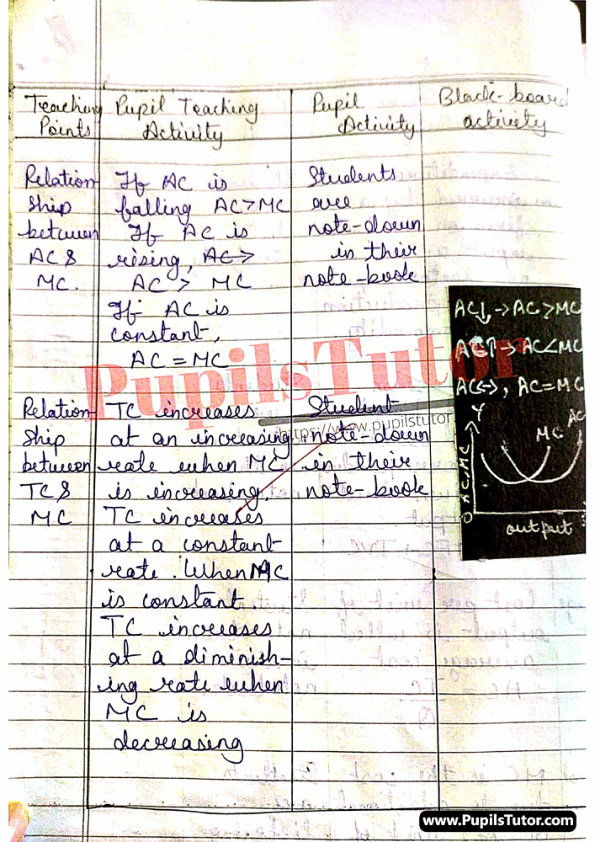 Teaching Points
Pupil Teaching Activity
Pupil Activity
Black-board activity
Relation-
ship
between
AC &
MC.
If AC is
falling AC>MC
If AC is
rising, AC>
AC > MC
If AC is
constant,
AC = MC
Students
are
note-down
in their
note-book
AC↓ -> AC>MC
AC↑ -> AC<MC
AC<->, AC=MC
Y
AC
MC
AC,MC
O
output
PupilsTutor
https://www.pupilstutor
Relation-
ship
between
TC &
MC
TC increases
at an increasing
rate when MC
is increasing.
TC increases
at a constant
rate. When MC
is constant.
TC increases
at a diminish-
ing rate when
MC is
decreasing
Student
note-down
in their
note-book
www.PupilsTutor.com